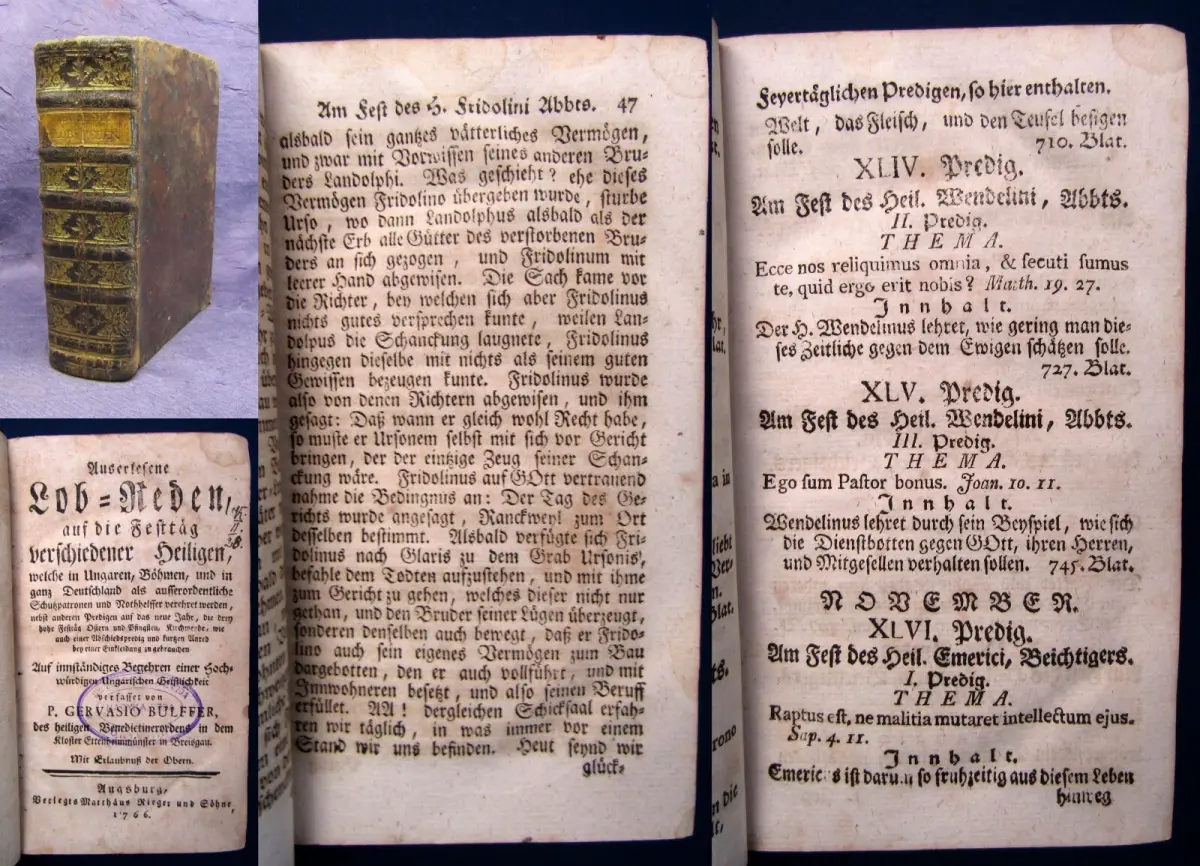 Auserlesene
Lob-Reden,
auf die Festtäg
verschiedener Heiligen,
welche in Ungaren, Böhmen, und in
ganz Deutschland als ausserordentliche
Schutzpatronen und Nothhelffer verehret werden,
nebst anderen Predigen auf das neue Jahr, die drey
hohe Festtäg Ostern und Pfingsten, Kirchweyhe, wie
auch einer Abschiedspredig und kurtzen Anred
bey einer Einkleidung zu gebrauchen
Auf innständiges Begehren einer Hoch-
würdigen Ungarischen Geistlichkeit
verfasset von
P. GERVASIO BULFFER,
des heiligen Benedictinerordens in dem
Kloster Ettenheimmünster in Breisgau.
Mit Erlaubnuß der Obern.
Augsburg,
Verlegts Matthäus Rieger und Söhne,
1766.
Am Fest des H. Fridolini Abbts. 47
alsbald sein gantzes vätterliches Vermögen,
und zwar mit Vorwissen seines anderen Bru-
ders Landolphi. Was geschieht? ehe dieses
Vermögen Fridolino übergeben wurde, sturbe
Urso, wo dann Landolphus alsbald als der
nächste Erb alle Gütter des verstorbenen Bru-
ders an sich gezogen, und Fridolinum mit
leerer Hand abgewisen. Die Sach kame vor
die Richter, bey welchen sich aber Fridolinus
nichts gutes versprechen kunte, weilen Lan-
dolpus die Schanckung laugnete, Fridolinus
hingegen dieselbe mit nichts als seinem guten
Gewissen bezeugen kunte. Fridolinus wurde
also von denen Richtern abgewisen, und ihm
gesagt: Daß wann er gleich wohl Recht habe,
so muste er Ursonem selbst mit sich vor Gericht
bringen, der der eintzige Zeug seiner Schan-
ckung wäre. Fridolinus auf GOtt vertrauend
nahme die Bedingnus an: Der Tag des Ge-
richts wurde angesagt, Ranckweyl zum Ort
desselben bestimmt. Alsbald verfügte sich Fri-
dolinus nach Glaris zu dem Grab Ursonis,
befahle dem Todten aufzustehen, und mit ihme
zum Gericht zu gehen, welches dieser nicht nur
gethan, und den Bruder seiner Lügen überzeugt,
sonderen denselben auch bewegt, daß er Frido-
lino auch sein eigenes Vermögen zum Bau
dargebotten, den er auch vollführt, und mit
Innwohneren besetzt, und also seinen Beruff
erfüllet. AA! dergleichen Schicksaal erfah-
ren wir täglich, in was immer vor einem
Stand wir uns befinden. Heut seynd wir
glück-
Feyertäglichen Predigen, so hier enthalten.
Welt, das Fleisch, und den Teufel besigen
solle. 710. Blat.
XLIV. Predig.
Am Fest des Heil. Wendelini, Abbts.
II. Predig.
THEMA.
Ecce nos reliquimus omnia, & secuti sumus
te, quid ergo erit nobis? Matth. 19. 27.
Innhalt.
Der H. Wendelinus lehret, wie gering man die-
ses Zeitliche gegen dem Ewigen schätzen solle.
727. Blat.
XLV. Predig.
Am Fest des Heil. Wendelini, Abbts.
III. Predig.
THEMA.
Ego sum Pastor bonus. Joan. 10. 11.
Innhalt.
Wendelinus lehret durch sein Beyspiel, wie sich
die Dienstbotten gegen GOtt, ihren Herren,
und Mitgesellen verhalten sollen. 745. Blat.
NOVEMBER.
XLVI. Predig.
Am Fest des Heil. Emerici, Beichtigers.
I. Predig.
THEMA.
Raptus est, ne malitia mutaret intellectum ejus.
Sap. 4. 11.
Innhalt.
Emericus ist darum so fruhzeitig aus diesem Leben
hinweg